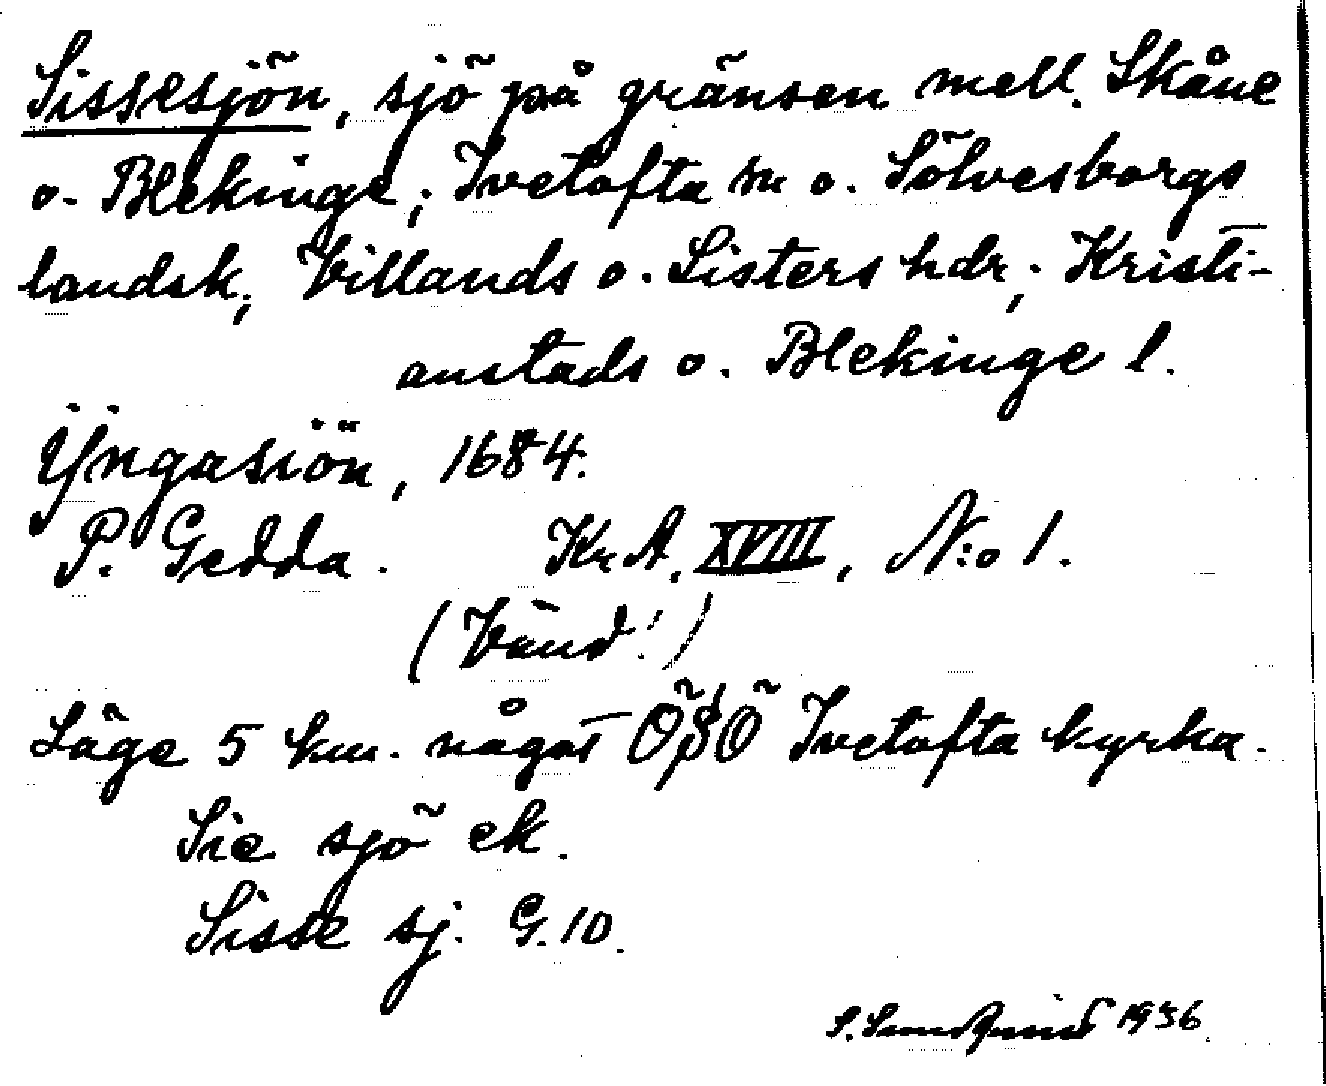 Sissesjön, sjö på gränsen mell. Skåne
o. Blekinge; Ivetofta sn o. Sölvesborgs
landsk; Villands o. Listers hdr; Kristi-
anstads o. Blekinge l.
Yngasiön, 1684.
P. Gedda. Kr A, XVIII, N:o 1.
(Vänd!)
Läge 5 km. något ÖSÖ Ivetofta kyrka.
Sie sjö ek.
Sisse sj. G. 10.
1936